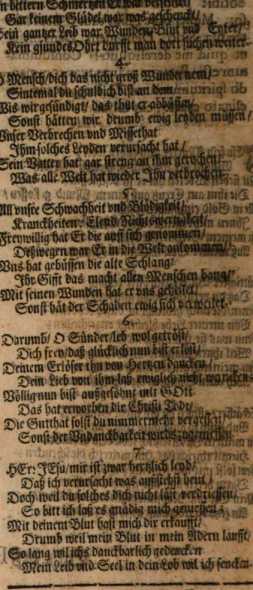 in bittern Schmertzen
Gar keinem Glidel war was geschenckt/
Sein gantzer Leib war Wunden/Blut und Eyter/
Kein gsundes Ohrt durfft man dort suchen weiter.
4.
O Mensch/dich das nicht groß Wunder nem/
Sintemal du schuldich bist an dem
Wis wir gesündigt/ das thut er abbüssen/
Sonst hätten wir drumb ewig leyden müssen/
Unser Verbrechen vnd Missethat
Ihm solches Leyden verursacht hat/
Sein Vatter hat gar streng an ihm gerochen/
Was alle Welt hat wieder Ihn verbrochen.
5.
All vnsre Schwachheit vnd Blödigkeit/
Kranckheiten/ Elend
Freywillig hat Er die auff sich genommen/
Deßwegen war Er in die Welt ankommen/
Vns hat gebissen die alte Schlang/
Ihr Gifft das macht allen Menschen bang/
Mit seinen Wunden hat er vns geheilet/
Sonst hät der Schaden ewig sich
6.
Darumb/ O Sünder/leb wol getröst/
Dich frew/daß glücklich nun bist erlöst/
Deinem Erlöser thu von Hertzen dancken/
Dein Lieb von ihm laß ewiglich nicht wancken/
Völlig nun bist außgesöhnt mit GOtt
Das hat erworben die Christi Todt/
Die Gutthat solst du nimmermehr vergessen/
Sonst der Undanckbarkeit wirds zugemessen.
7.
HErr JEsu/mir ist zwar hertzlich leyd/
Daß ich verursacht was außstehst heut/
Doch weil du solches dich nicht läst verdriessen/
So bitt ich laß es gnädig mich geniessen/
Mit deinem Blut hast mich dir erkaufft/
Drumb weil mein Blut in mein Adern laufft/
So lang wil ichs danckbarlich gedencken
Mein Leib vnd Seel in dein Lob wil ich sencken.